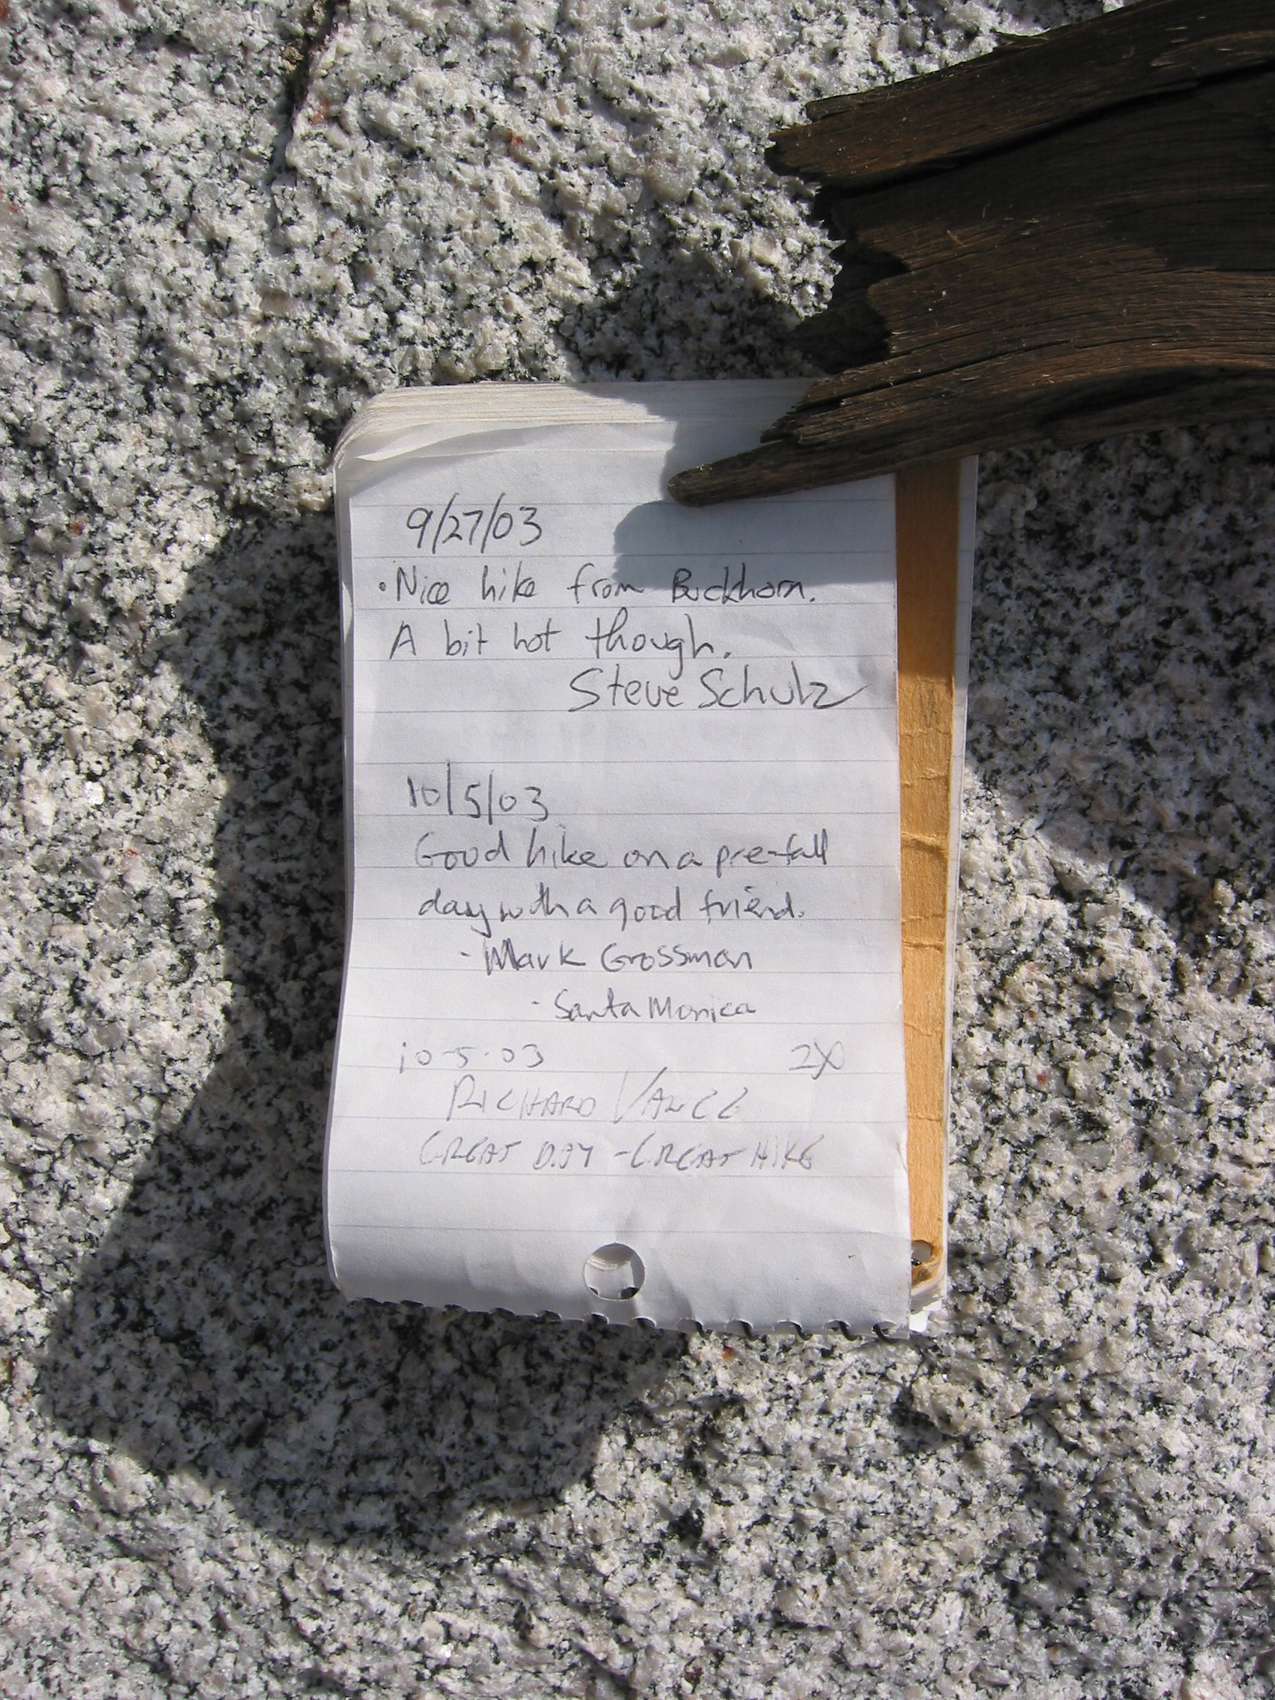 9/27/03
· Nice hike from Buckhorn.
A bit hot though.
Steve Schulz
10/5/03
Good hike on a pre-fall
day with a good friend.
- Mark Grossman
- Santa Monica
10-5-03 2X
RICHARD VANCE
GREAT DAY - GREAT HIKE